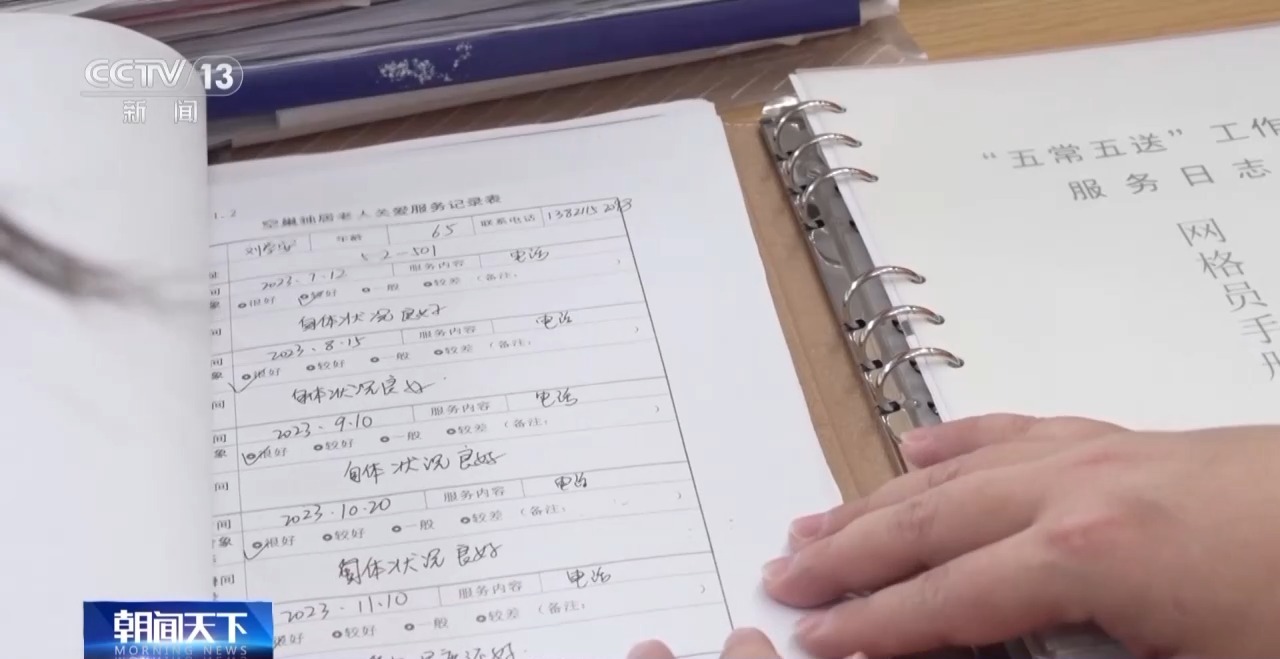 CCTV 13
新闻
1.2
空巢独居老人关爱服务记录表
年龄 65 联系电话
5 2-501
2023.7.12 服务内容 电话
很好 较好 一般 较差 (备注: )
身体状况良好
2023.8.15 服务内容 电话
很好 较好 一般 较差 (备注: )
身体状况良好
2023.9.10 服务内容 电话
很好 较好 一般 较差 (备注: )
身体状况良好
2023.10.20 服务内容 电话
很好 较好 一般 较差 (备注: )
身体状况良好
2023.11.10 服务内容 电话
很好 较好 一般 较差 (备注: )
“五常五送”工作
服务日志
网格员手册
朝闻天下
MORNING NEWS